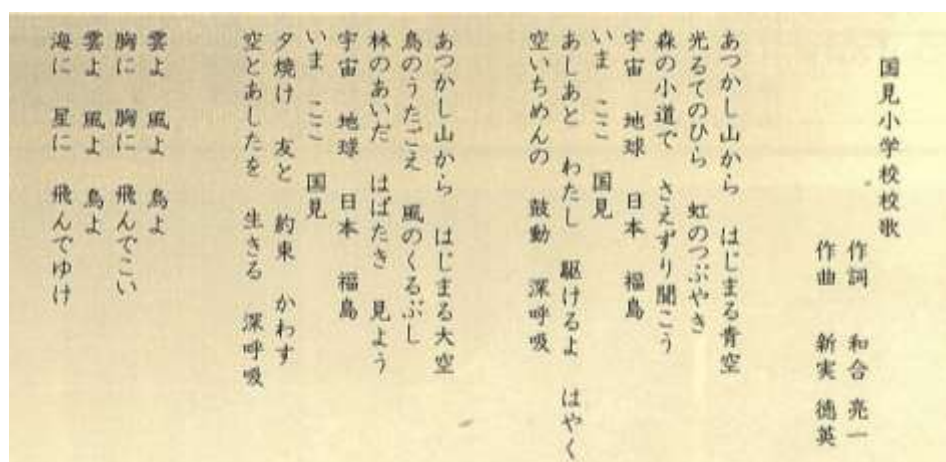 国見小学校校歌
作詞 和合 亮一
作曲 新実 徳英
あつかし山から はじまる青空
光るてのひら 虹のつぶやき
森の小道で さえずり聞こう
宇宙 地球 日本 福島
いま ここ 国見
あしあと わたし 駆けるよ はやく
空いちめんの 鼓動 深呼吸
あつかし山から はじまる大空
鳥のうたごえ 風のくるぶし
林のあいだ はばたき 見よう
宇宙 地球 日本 福島
いま ここ 国見
夕焼け 友と 約束 かわす
空とあしたを 生きる 深呼吸
雲よ 風よ 鳥よ
胸に 胸に 飛んでこい
雲よ 風よ 鳥よ
海に 星に 飛んでゆけ